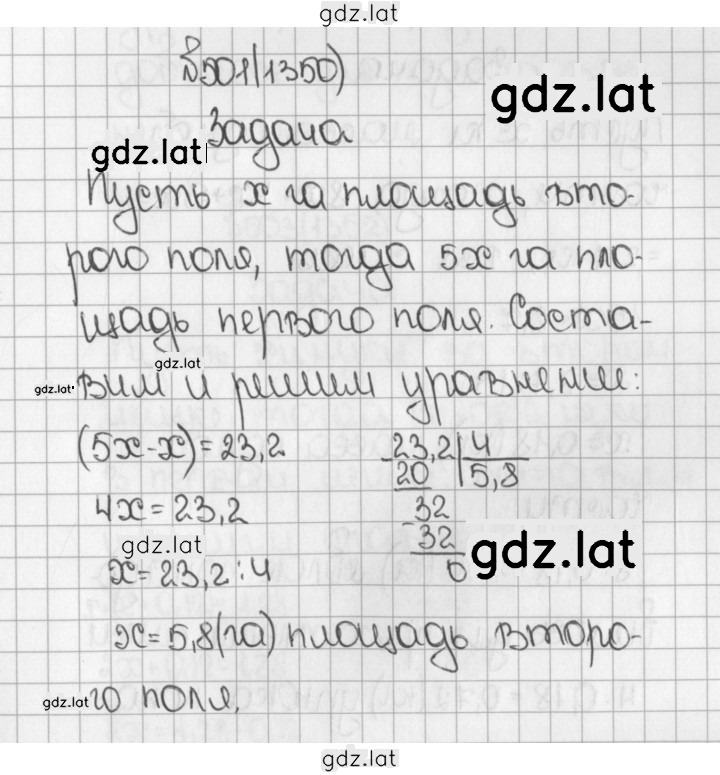 gdz.lat
№501(1350)
gdz.lat
Задача
gdz.lat
Пусть x га площадь вто-
рого поля, тогда 5x га пло-
щадь первого поля. Соста-
gdz.lat
gdz.lat
вим и решим уравнение:
(5x-x)=23,2
23,2 4
20 5,8
4x=23,2
32
32
gdz.lat
gdz.lat
x=23,2:4
0
x=5,8(га) площадь второ-
gdz.lat
го поля.
gdz.lat